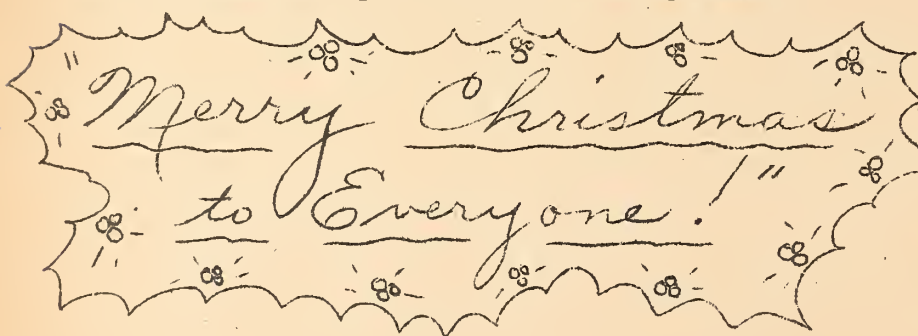 "Merry Christmas
to Everyone!"